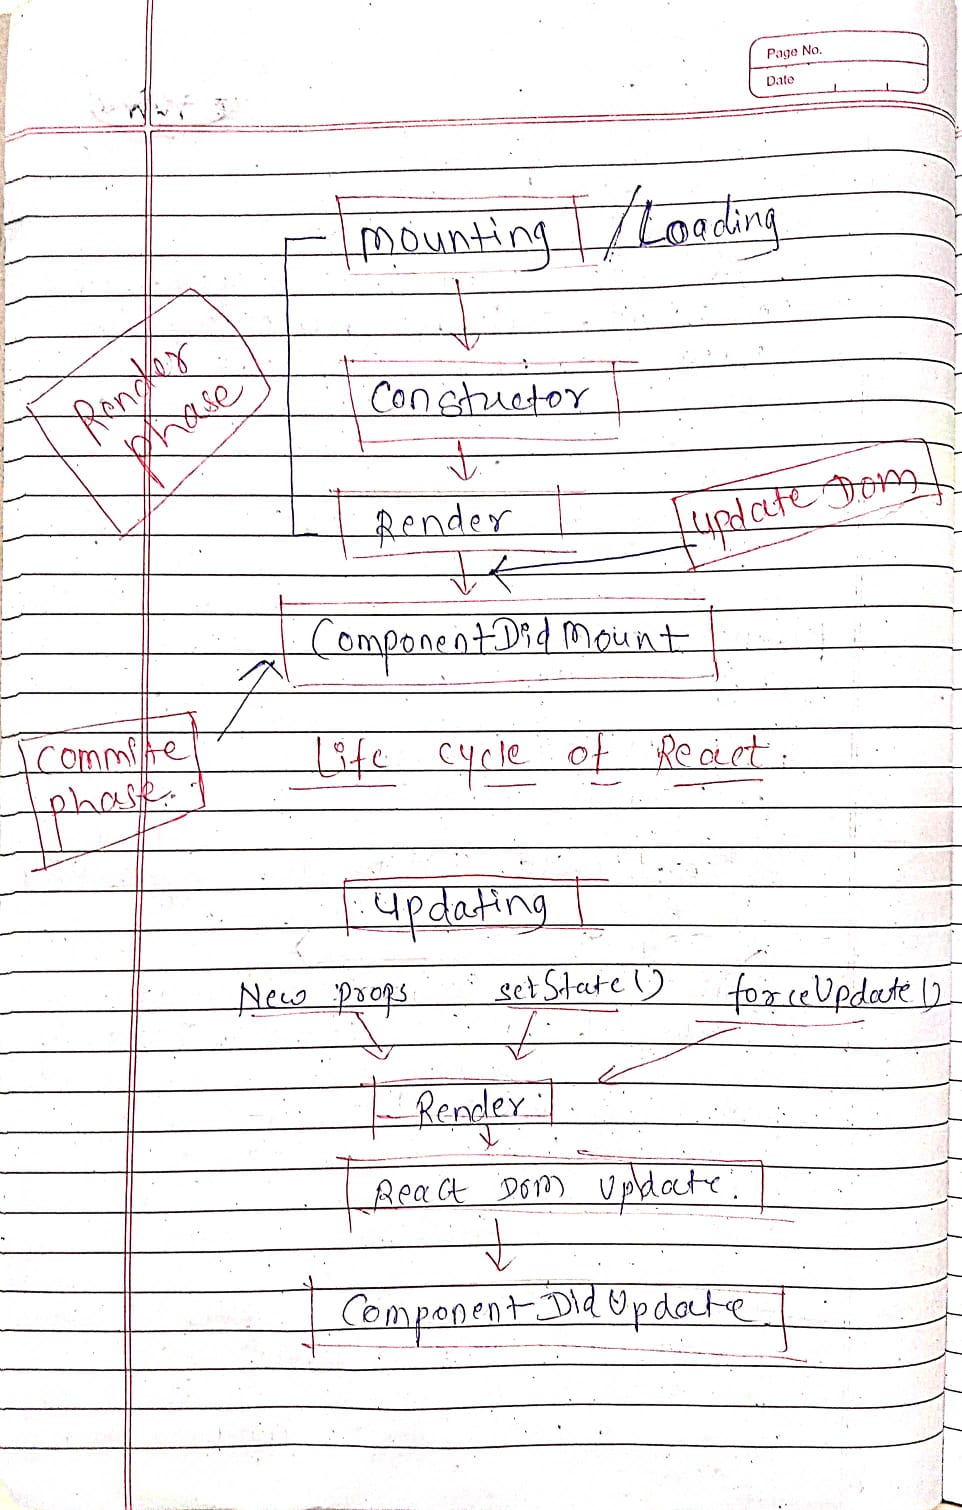 Page No.
Date
Mounting / Loading
Render
phase
Constuctor
Update DOM
Render
ComponentDidMount
Committe
phase.
Life cycle of React.
Updating
New props setState() forceUpdate()
Render
React DOM Update.
ComponentDidUpdate